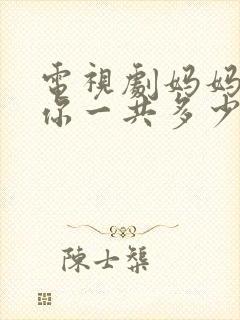 電視劇媽媽
你一共多少
陳士榘